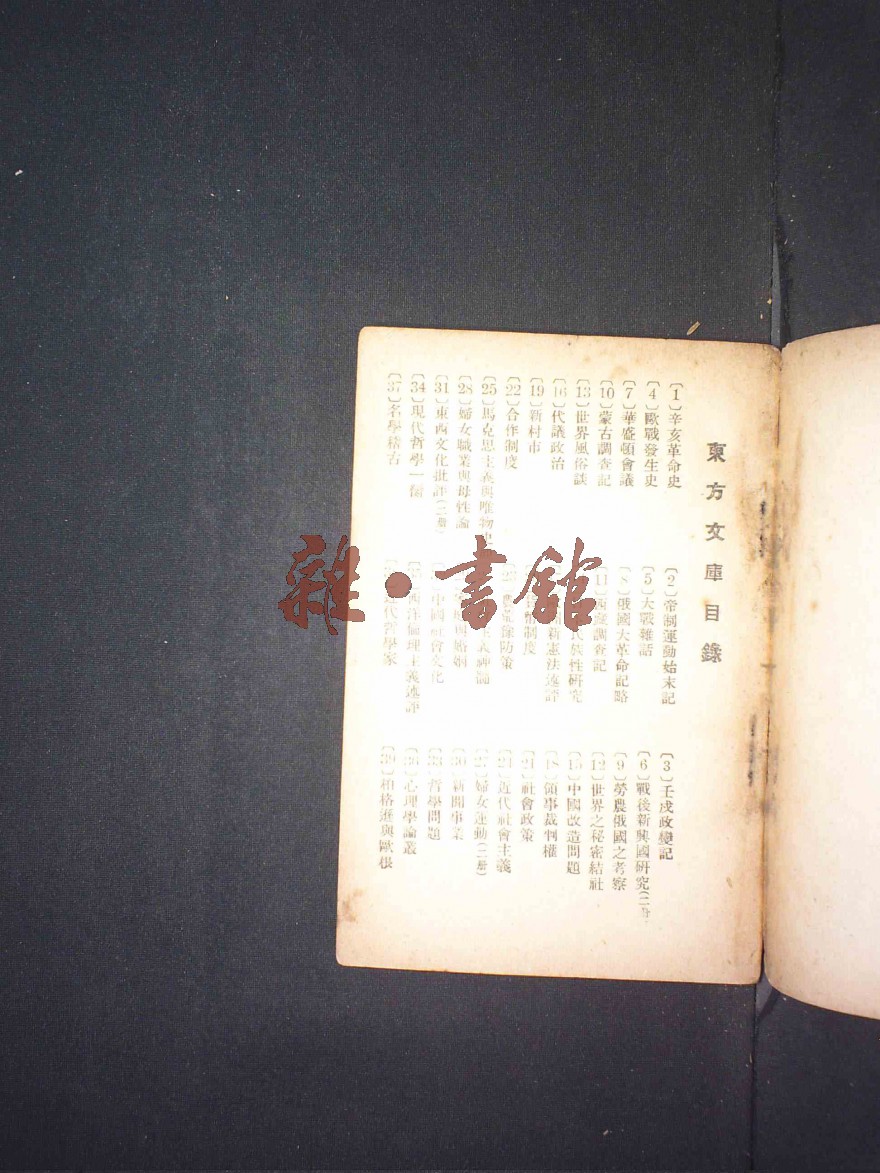 東方文庫目錄
〔1〕辛亥革命史 〔2〕帝制運動始末記 〔3〕壬戌政變記
〔4〕歐戰發生史 〔5〕大戰雜話 〔6〕戰後新興國研究(二册)
〔7〕華盛頓會議 〔8〕俄國大革命記略 〔9〕勞農俄國之考察
〔10〕蒙古調查記 〔11〕西藏調查記 〔12〕世界之秘密結社
〔13〕世界風俗談 族性研究 〔15〕中國改造問題
〔16〕代議政治 新憲法述評 〔18〕領事裁判權
〔19〕新村市 幣制度 〔21〕社會政策
〔22〕合作制度 預防策 〔24〕近代社會主義
〔25〕馬克思主義與唯物史 主義神髓 〔27〕婦女運動(二册)
〔28〕婦女職業與母性論 與婚姻 〔30〕新聞事業
〔31〕東西文化批評(二册) 中國社會文化 〔33〕哲學問題
〔34〕現代哲學一臠 西洋倫理主義述評 〔36〕心理學論叢
〔37〕名學稽古 代哲學家 〔39〕柏格遜與歐根
雜·書館